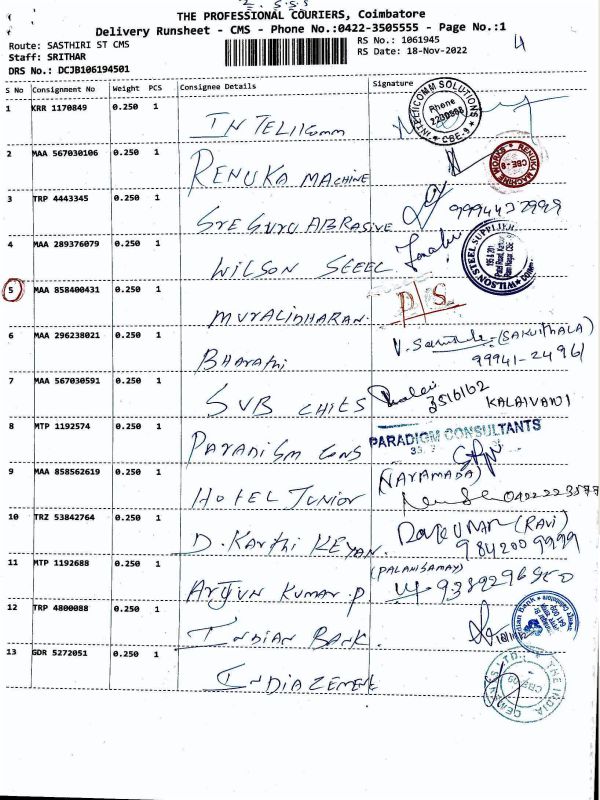 THE PROFESSIONAL COURIERS, Coimbatore
Delivery Runsheet - CMS - Phone No.:0422-3505555 - Page No.:1
Route: SASTHIRI ST CMS
RS No.: 1061945
4
Staff: SRITHAR
RS Date: 18-Nov-2022
DRS No.: DCJB106194501
S No Consignment No Weight PCS Consignee Details Signature
1 KRR 1170849 0.250 1 INTELICOMM
INTELICOMM SOLUTIONS CBE-9 Phone
2 MAA 567030106 0.250 1 RENUKA MACHINE
RENUKA MACHINE WORKS CBE-9
3 TRP 4443345 0.250 1 SRE GURU ABRASIVE
4 MAA 289376079 0.250 1 WILSON STEEL
WILSON STEEL SUPPLIERS
5 MAA 858400431 0.250 1 MURALIDHARAN. D/S
6 MAA 296238021 0.250 1 Bharathi
(SAKUNTHALA)
99941-24961
7 MAA 567030591 0.250 1 SUB CHITS
3516162 KALAIVANI
8 MTP 1192574 0.250 1 PARADISM CONS
PARADIGM CONSULTANTS
9 MAA 858562619 0.250 1 HOTEL JUNIOR
(NARAMADA)
10 TRZ 53842764 0.250 1 D. Karthi KEYAN.
(RAVI)
984200 9999
11 MTP 1192688 0.250 1 ARJUN KUMAR.P
(PALANISAMAY)
12 TRP 4800088 0.250 1 INDIAN BANK.
13 GDR 5272051 0.250 1 INDIA CEMENT
THE INDIA CEMENTS LTD. CBE-09